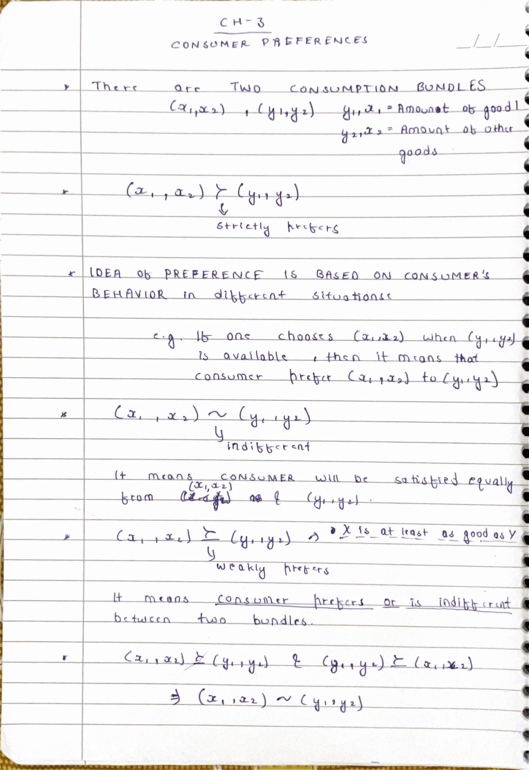 CH-3
CONSUMER PREFERENCES
_/_/_
There are TWO CONSUMPTION BUNDLES
(x₁,x₂) , (y₁,y₂) y₁, x₁ = Amount of good 1
y₂, x₂ = Amount of other
goods
(x₁, x₂) ≻ (y₁, y₂)
↓
strictly prefers
IDEA of PREFERENCE IS BASED ON CONSUMER'S
BEHAVIOR in different situations:
e.g. If one chooses (x₁,x₂) when (y₁,y₂)
is available, then it means that
consumer prefer (x₁,x₂) to (y₁,y₂)
(x₁, x₂) ~ (y₁, y₂)
indifferent
It means CONSUMER will be satisfied equally
from (x₁,x₂) & (y₁,y₂).
(x₁, x₂) ⪰ (y₁,y₂) → X is at least as good as Y
weakly prefers
It means consumer prefers or is indifferent
between two bundles.
(x₁,x₂) ⪰ (y₁,y₂) & (y₁,y₂) ⪰ (x₁,x₂)
⇒ (x₁,x₂) ~ (y₁,y₂)